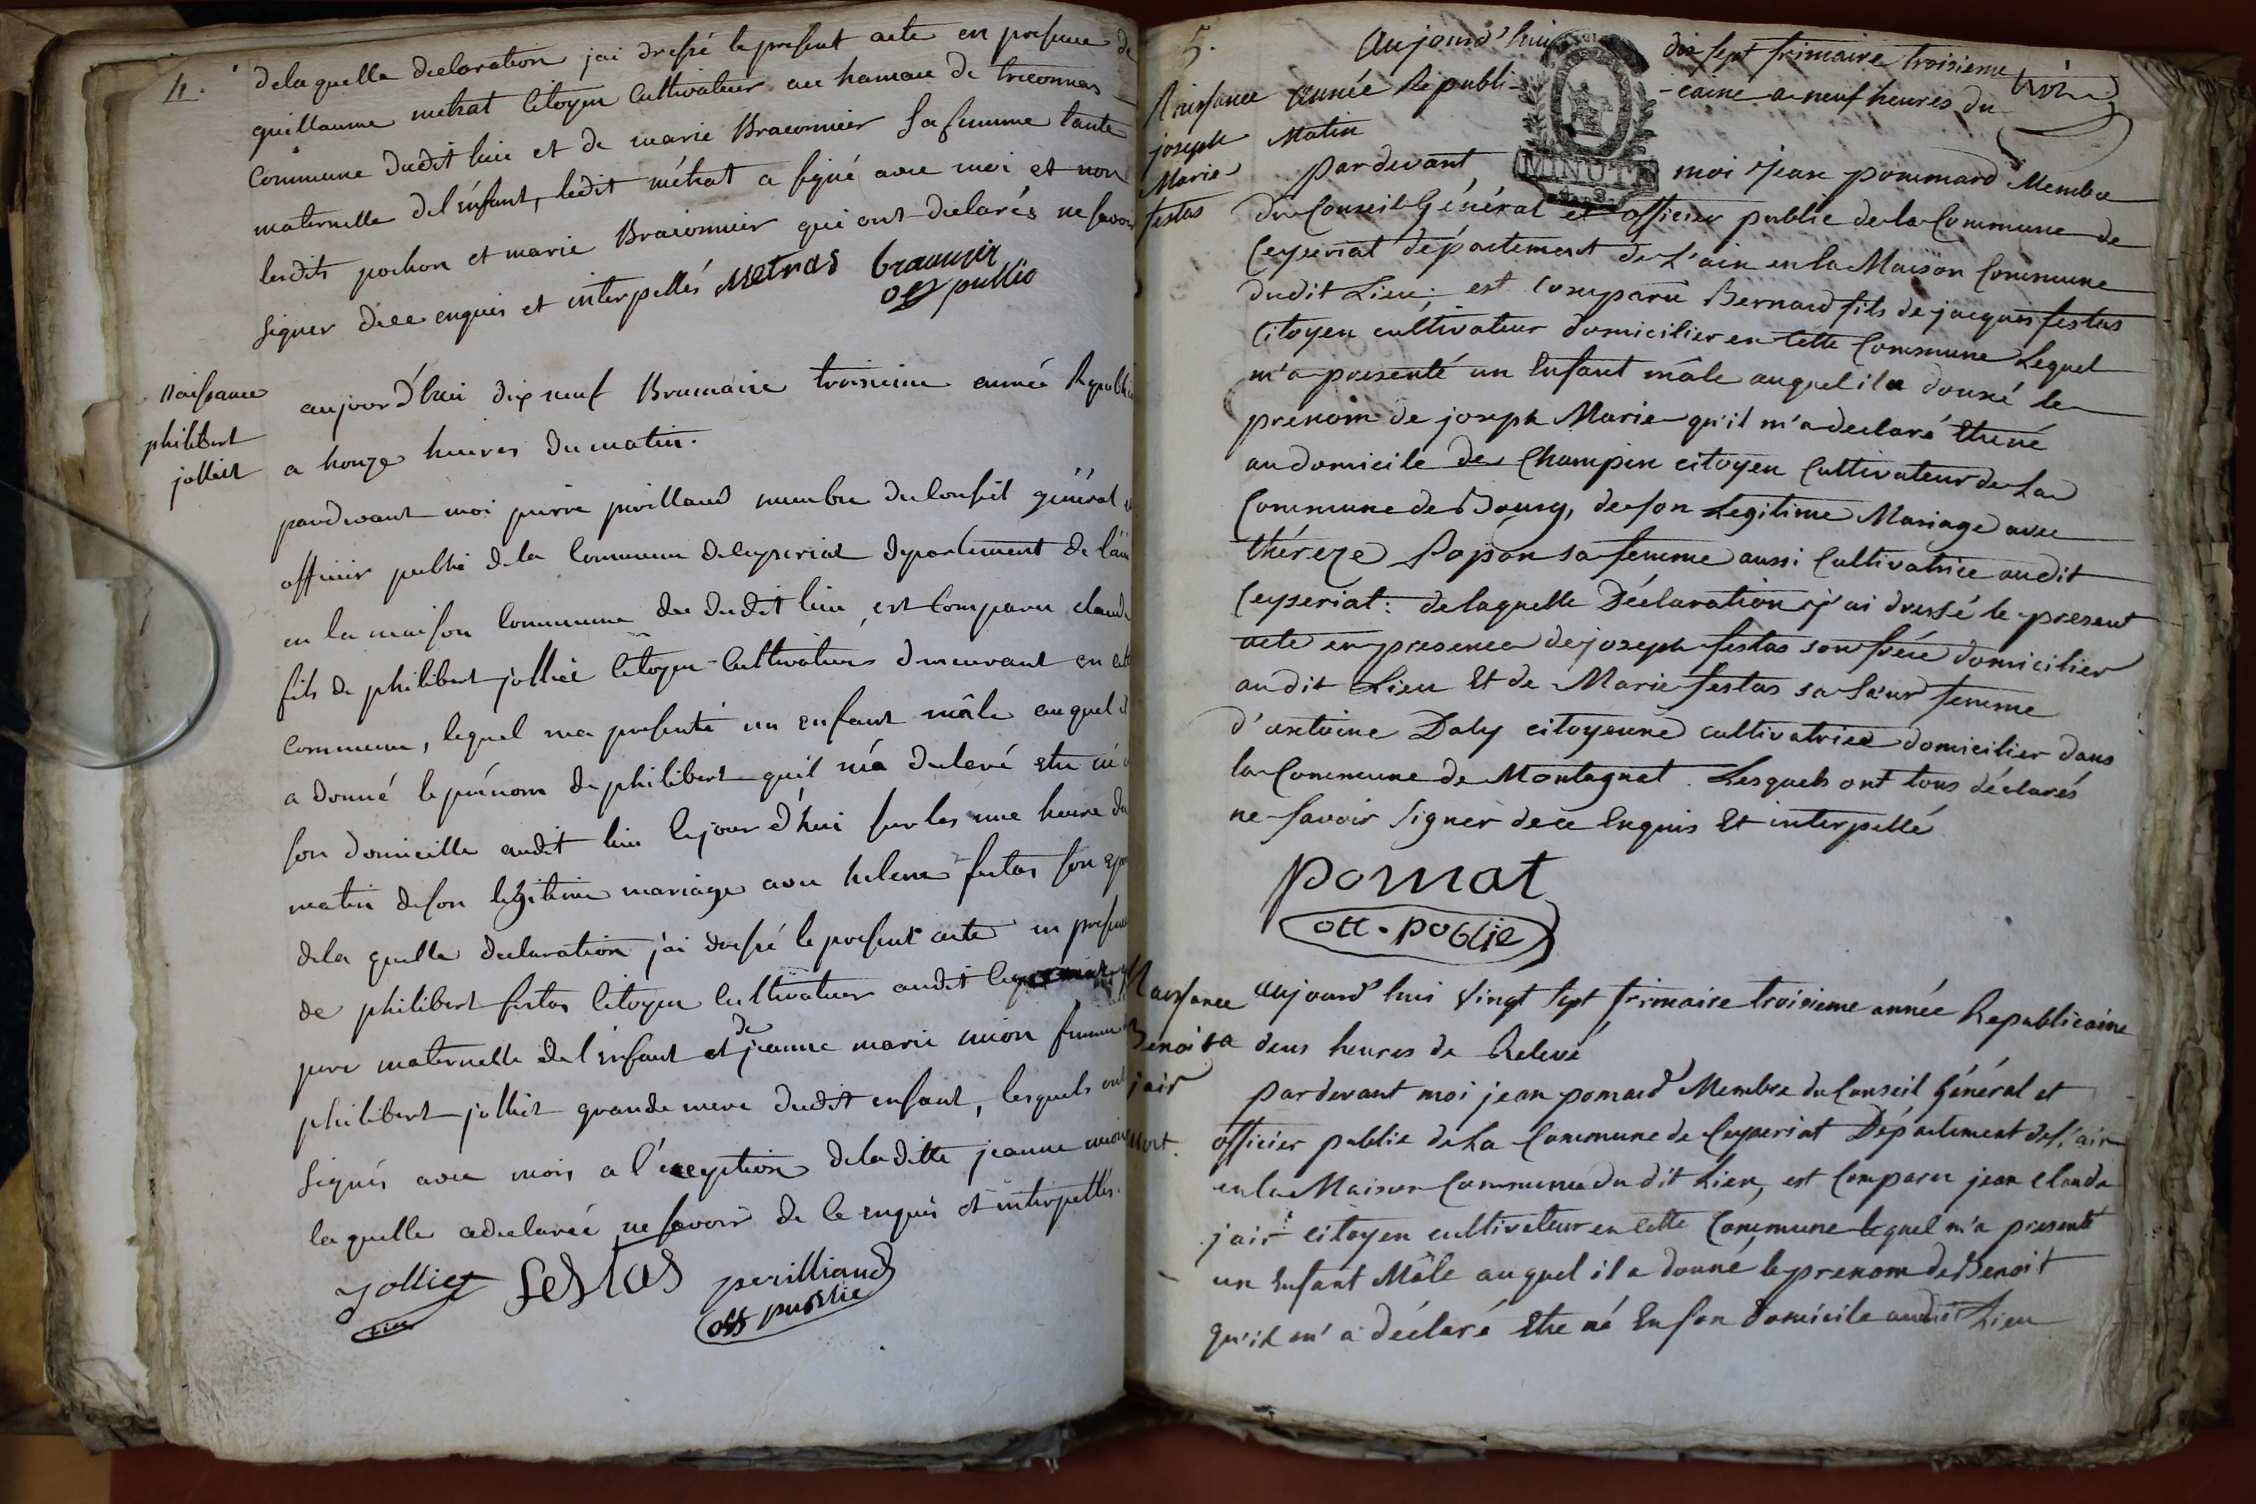 4.
delaquelle declaration jai dressé le present acte en presence de
guillaume metrat Citoyen Cultivateur au hamau de treconnas
Commune dudit lieu et de marie Braconnier sa femme tante
maternelle del'enfant, ledit métrat a signé avec moi et non
lesdits pochon et marie Braconnier qui ont declarés ne savoir
signer dece enquis et interpellés Metras braconnier
off public
Naissance
philibert
jolliet
aujourd'hui dix neuf Brumaire troisieme année Republi
a honze heures du matin.
pardevant moi pierre perilland membre du Conseil général et
officier public de la Commune de ceyseriat departement de l'ain
en la maison Commune du dudit lieu, est Comparu claude
fils de philibert jolliet Citoyen Cultivateur demeurant en cette
Commune, lequel ma presenté un enfant mâle auquel il
a donné le prénom de philibert quil m'a declaré etre né a
son domicille audit lieu lejour d'hui sur les une heure du
matin deson legitime mariage avec helene festas son epouse
dela quelle declaration j'ai dressé le present acte en presence
de philibert festas Citoyen Cultivateur audit
pere maternelle de l'enfant et de jeanne marie mion femme
philibert jolliet grande mere dudit enfant, lesquels ont
signés avec mois a l'exception deladitte jeanne mion
laquelle a declarée ne savoir de ce enquis et interpellés.
Jolliet festas perilliand
off public
5.
Aujourd'huy dix sept frimaire troisieme
Naissance
joseph
Marie
festas
année Republi-
-caine a neuf heures du
Matin
MINUTE
pardevant moi Jean pommard Membre
du Conseil Général et officier public de la Commune de
Ceyseriat département de L'ain en la Maison Commune
dudit Lieu; est Comparu Bernard fils de jacques festas
Citoyen cultivateur domicilier en cette Commune Lequel
m'a presenté un Enfant mâle auquel il a donné le
prenom de joseph Marie qu'il m'a declaré Etre né
au domicile de Champin citoyen Cultivateur de La
Commune de Bourg, de son Legitime Mariage avec
théreze Popon sa femme aussi Cultivatrice audit
Ceyseriat: delaquelle Déclaration j'ai dressé le present
acte en presence de joseph festas son frére domicilier
audit Lieu Et de Marie festas sa Sœur femme
d'antoine Daly citoyenne cultivatrice domicilier dans
la Commune de Montagnat. Lesquels ont tous déclarés
ne Savoir Signer dece Enquis Et interpellé
pomat
off. poblie
Naissance
Benoit
jair
mort.
aujourd'hui Vingt Sept frimaire troisieme année Republicaine
a deux heures de Relevé
pardevant moi jean pomard Membre du Conseil Général et
officier public de La Commune de Ceyseriat Département de L'ain
en la Maison Commune du dit Lieu, est Comparu jean Claude
jair citoyen cultivateur en cette Commune lequel m'a presenté
un Enfant Mâle auquel il a donné le prenom de Benoit
qu'il m'a déclaré Etre né En son Domicile audit Lieu